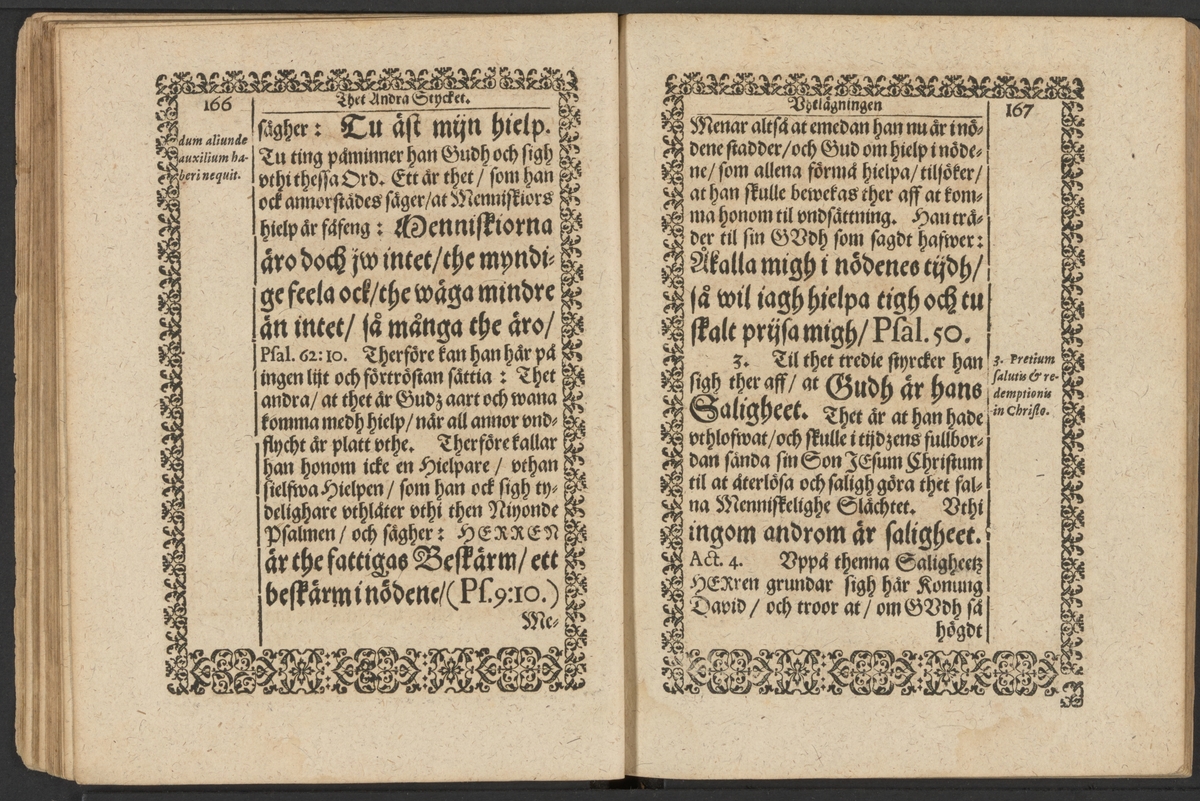 166
Thet Andra Stycket.
dum aliunde
auxilium ha-
beri nequit.
sägher: Tu äst mijn hielp.
Tu ting påminner han Gudh och sigh
vthi thessa Ord. Ett är thet/ som han
ock annorstädes säger/at Menniskiors
hielp är fåfeng: Menniskiorna
äro doch jw intet/the myndi-
ge feela ock/the wäga mindre
än intet/ så många the äro/
Psal. 62:10. Therföre kan han här på
ingen lijt och förtröstan sättia: Thet
andra/ at thet är Gudz aart och wana
komma medh hielp/ när all annor vnd-
flycht är platt vthe. Therföre kallar
han honom icke en Hielpare/ vthan
sielfwa Hielpen/ som han ock sigh ty-
delighare vthläter vthi then Nijonde
Psalmen/ och sägher: HERREN
är the fattigas Beskärm/ ett
beskärm i nödene/(Ps.9:10.)
Me-
Vytlägningen
167
Menar altså at emedan han nu är i nö-
dene stadder/och Gud om hielp i nöde-
ne/ som allena förmå hielpa/ tilsöker/
at han skulle bewekas ther aff at kom-
ma honom til vndsättning. Han trä-
der til sin GVdh som sagdt hafwer:
Åkalla migh i nödenes tijdh/
så wil iagh hielpa tigh och tu
skalt prijsa migh/ Psal. 50.
3. Til thet tredie styrcker han
sigh ther aff/ at Gudh är hans
Saligheet. Thet är at han hade
vthlofwat/och skulle i tijdzens fullbor-
dan sända sin Son JEsum Christum
til at återlösa och saligh göra thet fal-
na Menniskelighe Slächtet. Vthi
ingom androm är saligheet.
Act. 4. Vppå thenna Saligheetz
HERren grundar sigh här Konung
David/ och troor at/ om GVdh så
högdt
3. Pretium
salutis & re-
demptionis
in Christo.